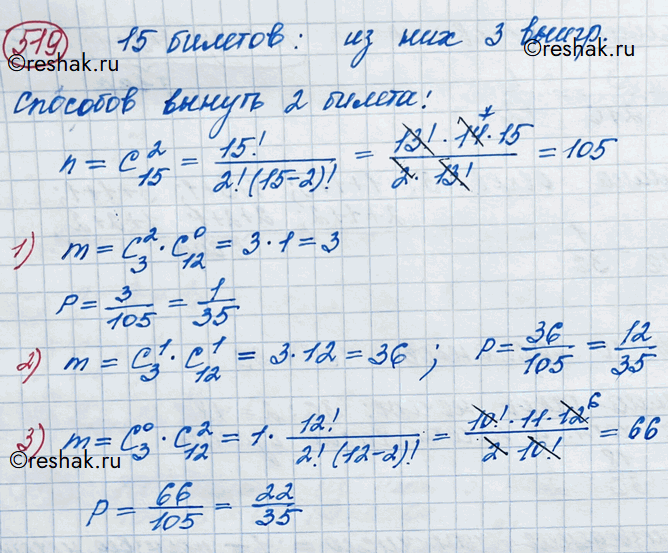 519 15 билетов: из них 3 выигр.
©reshak.ru ©reshak.ru
Способов вынуть 2 билета:
n = C_15^2 = 15!/(2!(15-2)!) = (13! · 14 7 · 15)/(2 · 13!) = 105
1) m = C_3^2 · C_12^0 = 3 · 1 = 3
P = 3/105 = 1/35
2) m = C_3^1 · C_12^1 = 3 · 12 = 36 ; P = 36/105 = 12/35
3) m = C_3^0 · C_12^2 = 1 · 12!/(2!(12-2)!) = (10! · 11 · 12 6)/(2 · 10!) = 66
©reshak.ru ©reshak.ru
P = 66/105 = 22/35